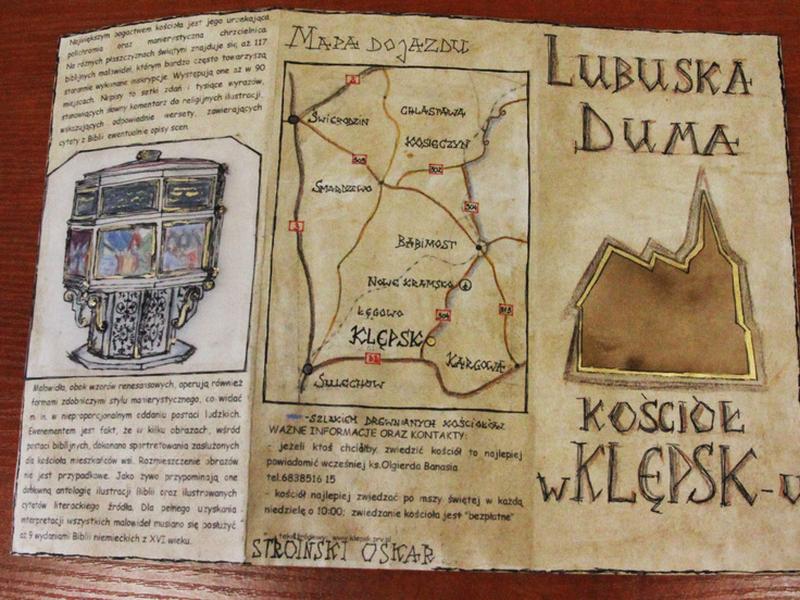 Największym bogactwem kościoła jest jego urzekająca
polichromia oraz manierystyczna chrzcielnica.
Na różnych płaszczyznach świątyni znajduje się aż 117
biblijnych malowideł, którym bardzo często towarzyszą
starannie wykonane inskrypcje. Występują one aż w 90
miejscach. Napisy to setki zdań i tysiące wyrazów,
stanowiących słowny komentarz do religijnych ilustracji,
wskazujących odpowiednie wersety, zawierających
cytaty z Biblii ewentualnie opisy scen.
Malowidła, obok wzorów renesansowych, operują również
formami zdobniczymi stylu manierystycznego, co widać
m. in. w nieproporcjonalnym oddaniu postaci ludzkich.
Ewenementem jest fakt, że w kilku obrazach, wśród
postaci biblijnych, dokonano sportretowania zasłużonych
dla kościoła mieszkańców wsi. Rozmieszczenie obrazów
nie jest przypadkowe. Jako żywo przypominają one
dawną antologię ilustracji Biblii oraz ilustrowanych
cytatów literackiego źródła. Dla pełnego uzyskania
interpretacji wszystkich malowideł musiano się posłużyć
aż 9 wydaniami Biblii niemieckich z XVI wieku.
MAPA DOJAZDU
3
ŚWIEBODZIN
CHLASTAWA
KOSIECZYN
303
302
SMARDZEWO
304
3
BABIMOST
NOWE KRAMSKO
ŁĘGOWO
304
313
KLĘPSK
32
KARGOWA
SULECHÓW
-SZLAKIEM DREWNIANYCH KOŚCIOŁÓW
WAŻNE INFORMACJE ORAZ KONTAKTY:
- jeżeli ktoś chciałby zwiedzić kościół to najlepiej
powiadomić wcześniej ks.Olgierda Banasia
tel.6838516 15
- kościół najlepiej zwiedzać po mszy świętej w każdą
niedzielę o 10:00; zwiedzanie kościoła jest "bezpłatne"
www.klepsk.prv.pl
STROIŃSKI OSKAR
LUBUSKA
DUMA
KOŚCIÓŁ
W KLĘPSK-U